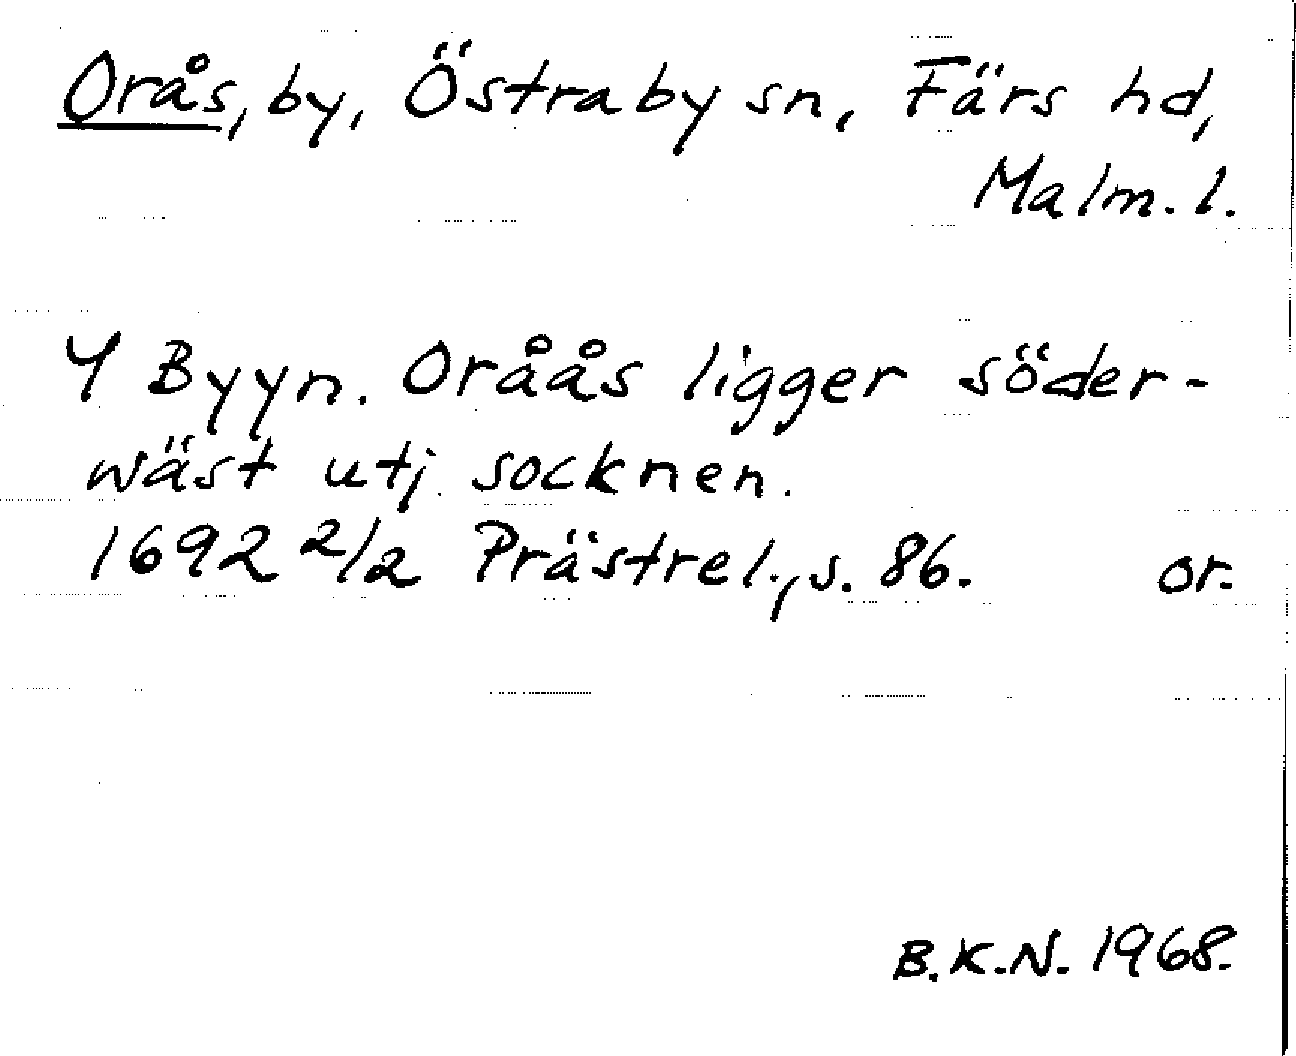 Orås, by, Östraby sn, Färs hd,
Malm. l.
4 Byyn. Oråås ligger söder-
wäst utj socknen.
1692 2/2 Prästrel., s. 86. or.
B.K.N. 1968.